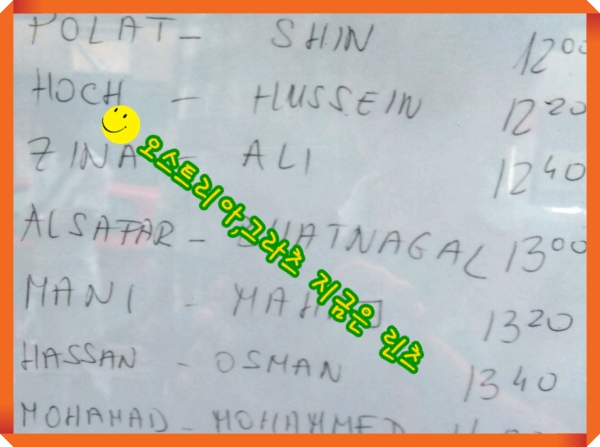 POLAT - SHIN 12⁰⁰
HOCH - HUSSEIN 12²⁰
ZINA - ALI 12⁴⁰
ALSAFAR - BHATNAGAL 13⁰⁰
MANI - 13²⁰
HASSAN - OSMAN 13⁴⁰
MOHAMAD - MOHAMMED
오스트리아,그라츠 지금은 린츠